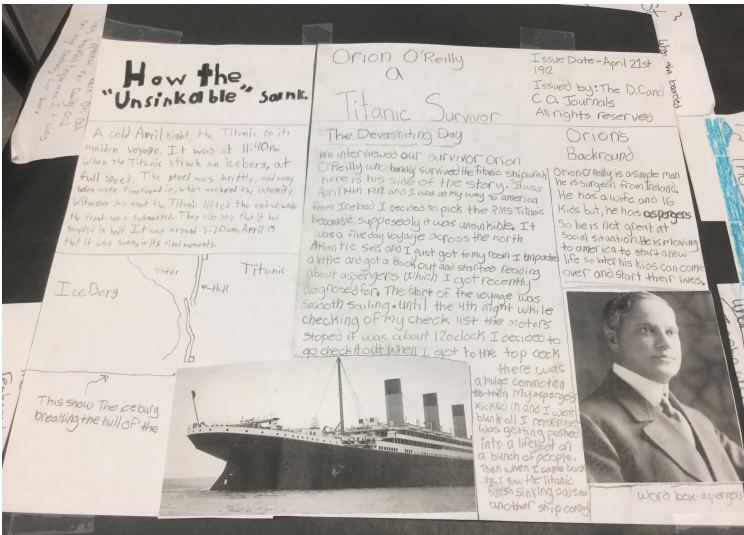 How the
"Unsinkable" Sank.
A cold April night, the Titanic on its
maiden voyage. It was at 11:40 PM
When the Titanic struck an iceberg, at
full speed. The steel was brittle, and many
holes were Punctured in, which weekend the integrity.
Witnesses say that the Titanic lifted the end up while
the front was submerged. They also say that it had
snapped in half. It was around 2:20am April 15
that it was in its final moments.
Water
Titanic
Ice Berg
Hull
This show The iceburg
breaking the hull of the
Orion O'Reilly
a
Titanic Survivor
The Devastating Day
We interviewed our survivor Orion
O'Reilly who barely survived the titanic shipwreck
here is his side of the story. "It was
April 14th 1912 and I was on my way to america
from Ireland I decided to pick the RMS Titanic
because supposedly it was unsinkible. It
was a five day voyage across the north
Atlantic Sea, and I just got to my room I unpacked
a little and got a book out and started reading
about aspergers which I got recently
diagnosed for. The start of the voyage was
smooth sailing. until the 4th night while
checking of my check list the motors
stoped it was about 12oclock I decided to
go check it out when I got to the top deck
there was
a huge commotion
then My aspergers
kicked in and I went
blank all I remember
was getting pushed
into a lifeboat on
a bunch of people.
Then when I came back
to, I saw the titanic
finish sinking and saw
another ship coming
Issue Date - April 21st
1912
Issued by: The D.C and
C.O. Journals
All rights reserved
Orion's
Backround
Orion O'Reilly is a simple man
he is surgeon from Ireland.
He has a wife and 16
Kids but, he has aspergers
So he is not great at
Social situation. He is moving
to america to start a new
life so later his kids can come
over and start their lives.
word box-aspergers